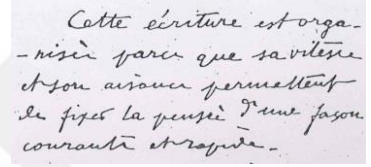 Cette écriture est orga-
-nisée parce que sa vitesse
et son aisance permettent
de fixer la pensée d'une façon
courante et rapide.